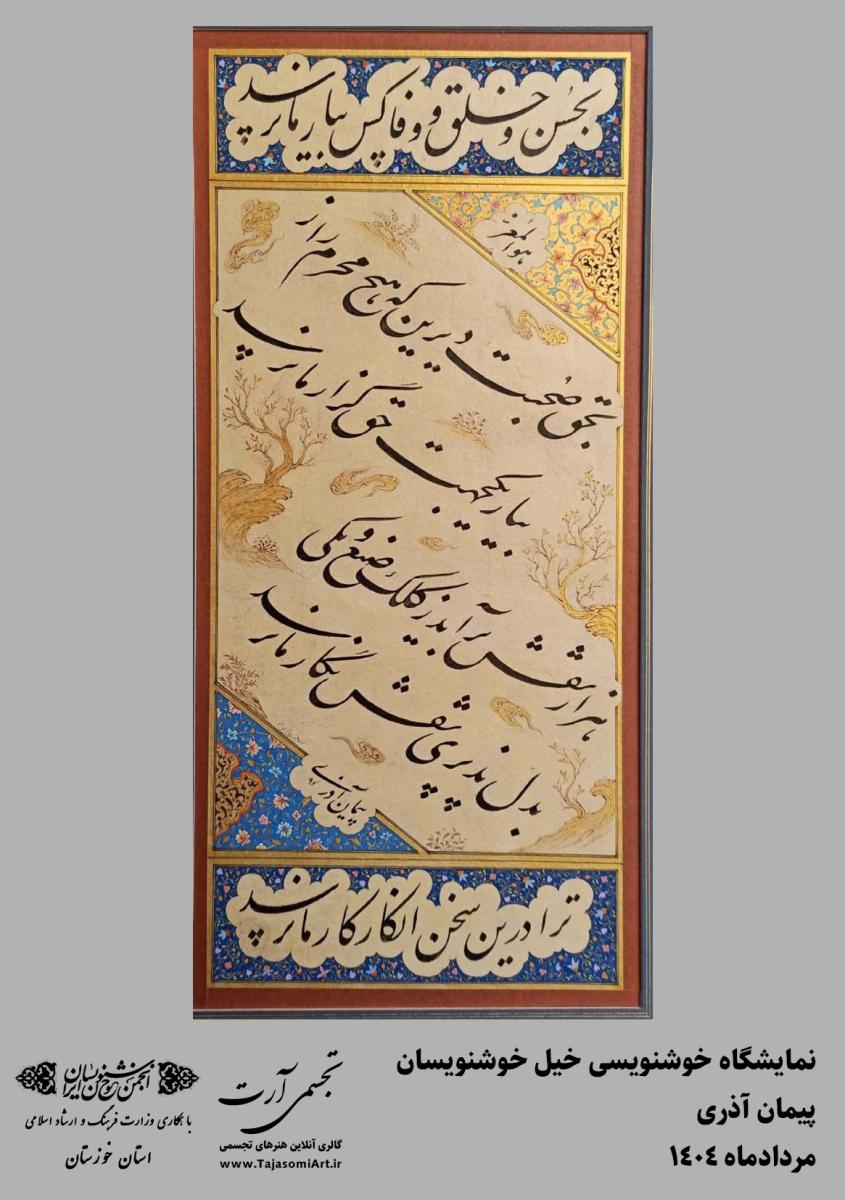 بحُسن و خلق و وفا کس بیار ما نرسد
هوالمعز
بحق صحبت دیرین که هیچ محرم راز
بیار یکجهت حق گزار ما نرسد
هزار نقش برآید ز کلک صنع و یکی
بدلپذیری نقش نگار ما نرسد
پیمان آذری
ترا درین سخن انکار کار ما نرسد
نمایشگاه خوشنویسی خیل خوشنویسان
پیمان آذری
مردادماه ۱۴۰۴
تجسمی آرت
گالری آنلاین هنرهای تجسمی
www.TajasomiArt.ir
انجمن خوشنویسان ایران
با همکاری وزارت فرهنگ و ارشاد اسلامی
استان خوزستان